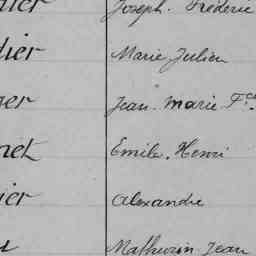 Joseph. Frédéric
Marie Julien
Jean. Marie. Fçs.
Emile. Henri
Alexandre
Mathurin Jean